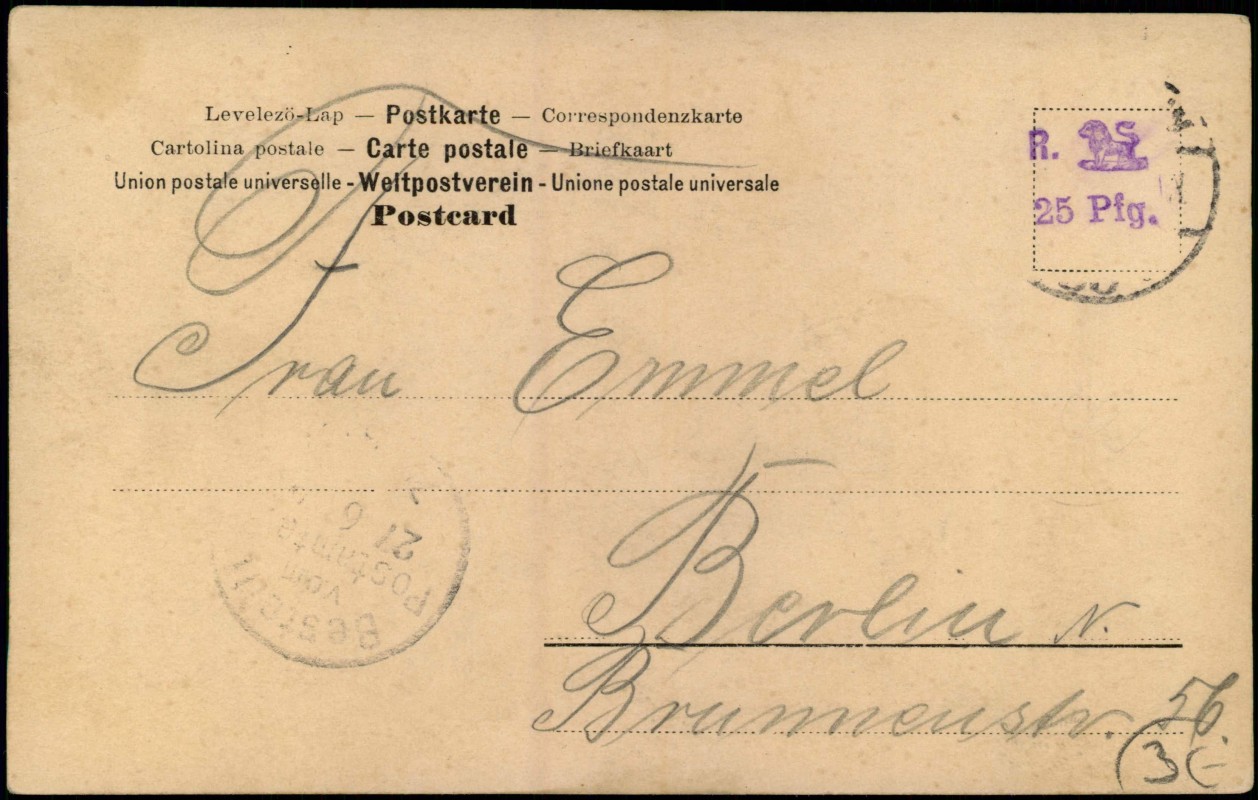 Levelezö-Lap — Postkarte — Correspondenzkarte
Cartolina postale — Carte postale — Briefkaart
Union postale universelle - Weltpostverein - Unione postale universale
Postcard
R.
25 Pfg.
Frau Emmel
Berlin N.
Brunnenstr. 56.
Bestellt
vom
Postamte
27 6